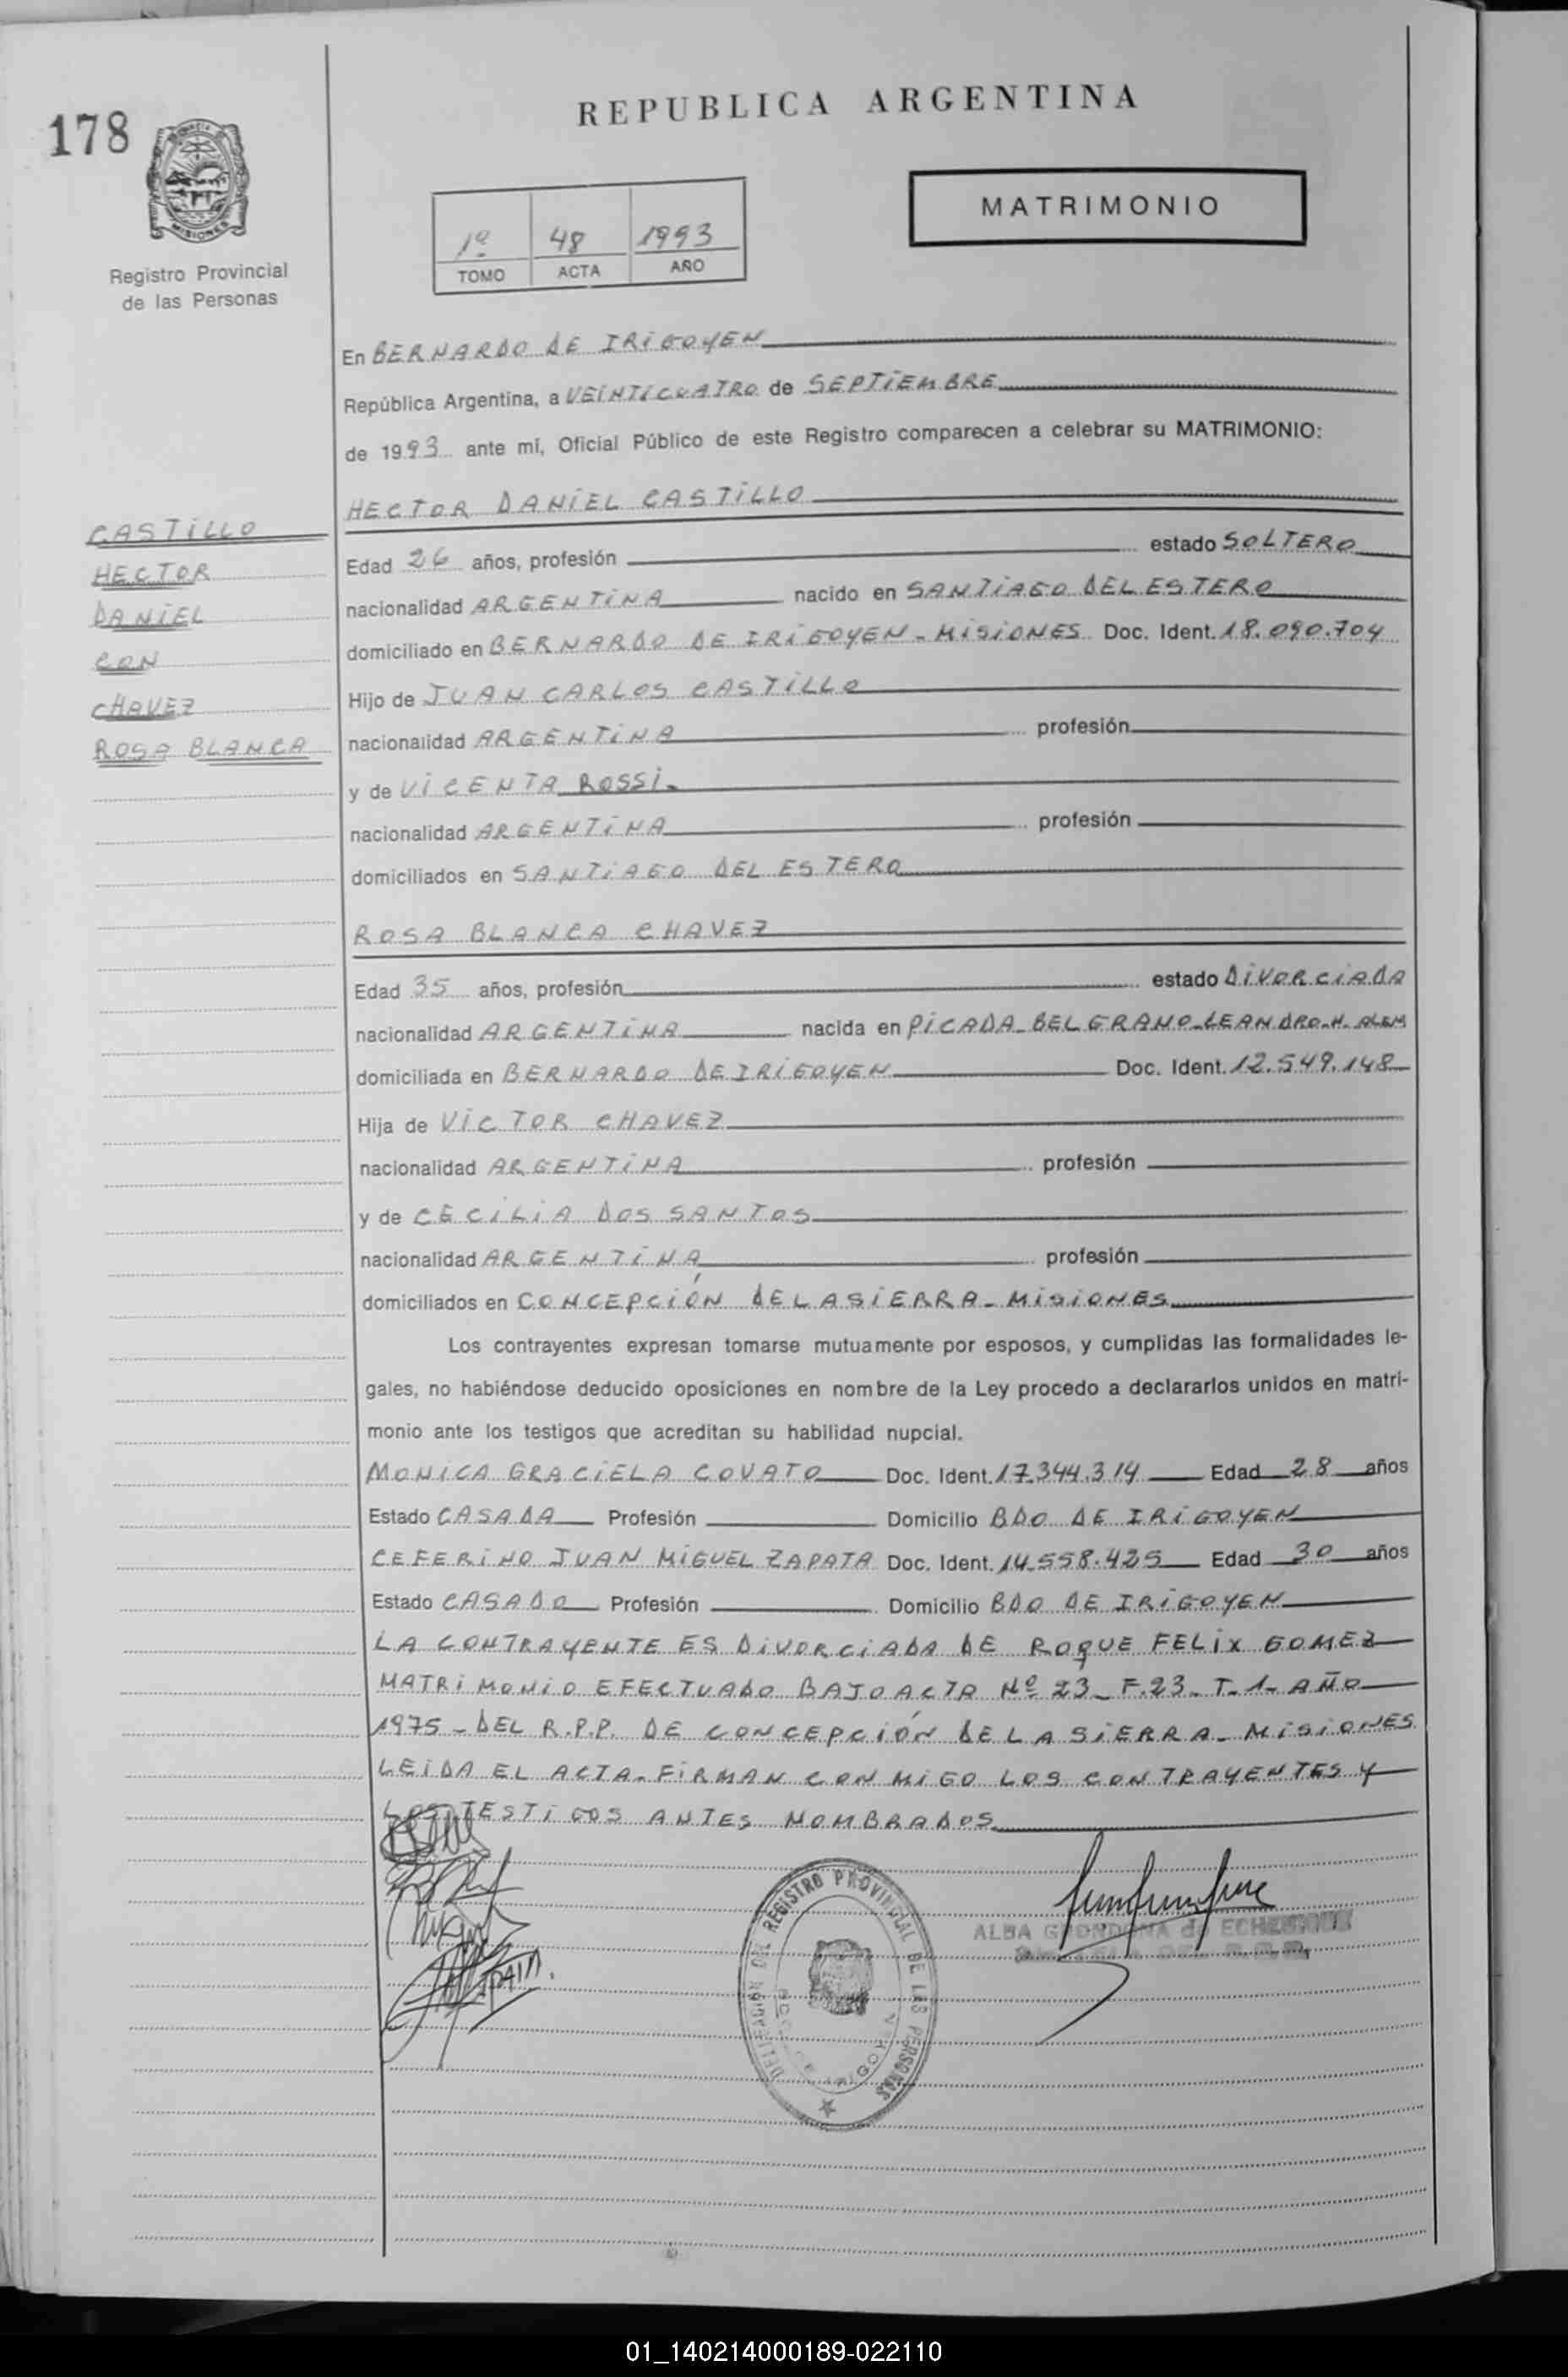 178
REPUBLICA ARGENTINA
MISIONES
Registro Provincial
de las Personas
1º 48 1993
TOMO ACTA AÑO
MATRIMONIO
En BERNARDO DE IRIGOYEN
República Argentina, a VEINTICUATRO de SEPTIEMBRE
de 1993 ante mí, Oficial Público de este Registro comparecen a celebrar su MATRIMONIO:
CASTILLO
HECTOR
DANIEL
CON
CHAVEZ
ROSA BLANCA
HECTOR DANIEL CASTILLO
Edad 26 años, profesión estado SOLTERO
nacionalidad ARGENTINA nacido en SANTIAGO DEL ESTERO
domiciliado en BERNARDO DE IRIGOYEN - MISIONES Doc. Ident. 18.090.704
Hijo de JUAN CARLOS CASTILLO
nacionalidad ARGENTINA profesión
y de VICENTA ROSSI.
nacionalidad ARGENTINA profesión
domiciliados en SANTIAGO DEL ESTERO
ROSA BLANCA CHAVEZ
Edad 35 años, profesión estado DIVORCIADA
nacionalidad ARGENTINA nacida en PICADA BELGRANO-LEANDRO-N. ALEM
domiciliada en BERNARDO DE IRIGOYEN Doc. Ident. 12.549.148
Hija de VICTOR CHAVEZ
nacionalidad ARGENTINA profesión
y de CECILIA DOS SANTOS
nacionalidad ARGENTINA profesión
domiciliados en CONCEPCIÓN DE LA SIERRA - MISIONES
Los contrayentes expresan tomarse mutuamente por esposos, y cumplidas las formalidades le-
gales, no habiéndose deducido oposiciones en nombre de la Ley procedo a declararlos unidos en matri-
monio ante los testigos que acreditan su habilidad nupcial.
MONICA GRACIELA COVATO Doc. Ident. 17.344.314 Edad 28 años
Estado CASADA Profesión Domicilio BDO DE IRIGOYEN
CEFERINO JUAN MIGUEL ZAPATA Doc. Ident. 14.558.425 Edad 30 años
Estado CASADO Profesión Domicilio BDO DE IRIGOYEN
LA CONTRAYENTE ES DIVORCIADA DE ROQUE FELIX GOMEZ
MATRIMONIO EFECTUADO BAJO ACTA Nº 23 - F. 23 - T. 1 - AÑO
1975 - DEL R.P.P. DE CONCEPCIÓN DE LA SIERRA - MISIONES
LEIDA EL ACTA - FIRMAN CONMIGO LOS CONTRAYENTES Y
LOS TESTIGOS ANTES NOMBRADOS
DELEGACION DEL REGISTRO PROVINCIAL DE LAS PERSONAS
BDO. DE IRIGOYEN
ALBA de
01_140214000189-022110